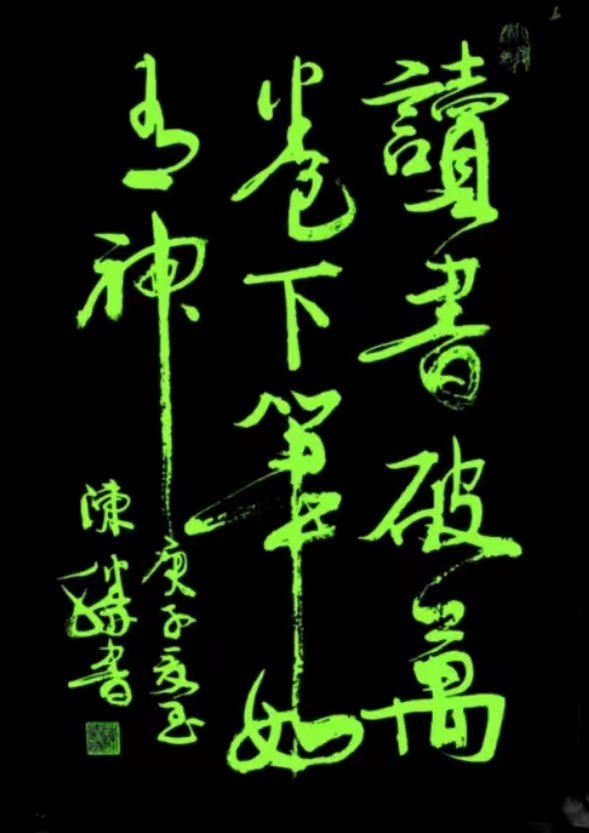 讀書破萬
卷下筆如
有神
庚子夏至
陳勝書